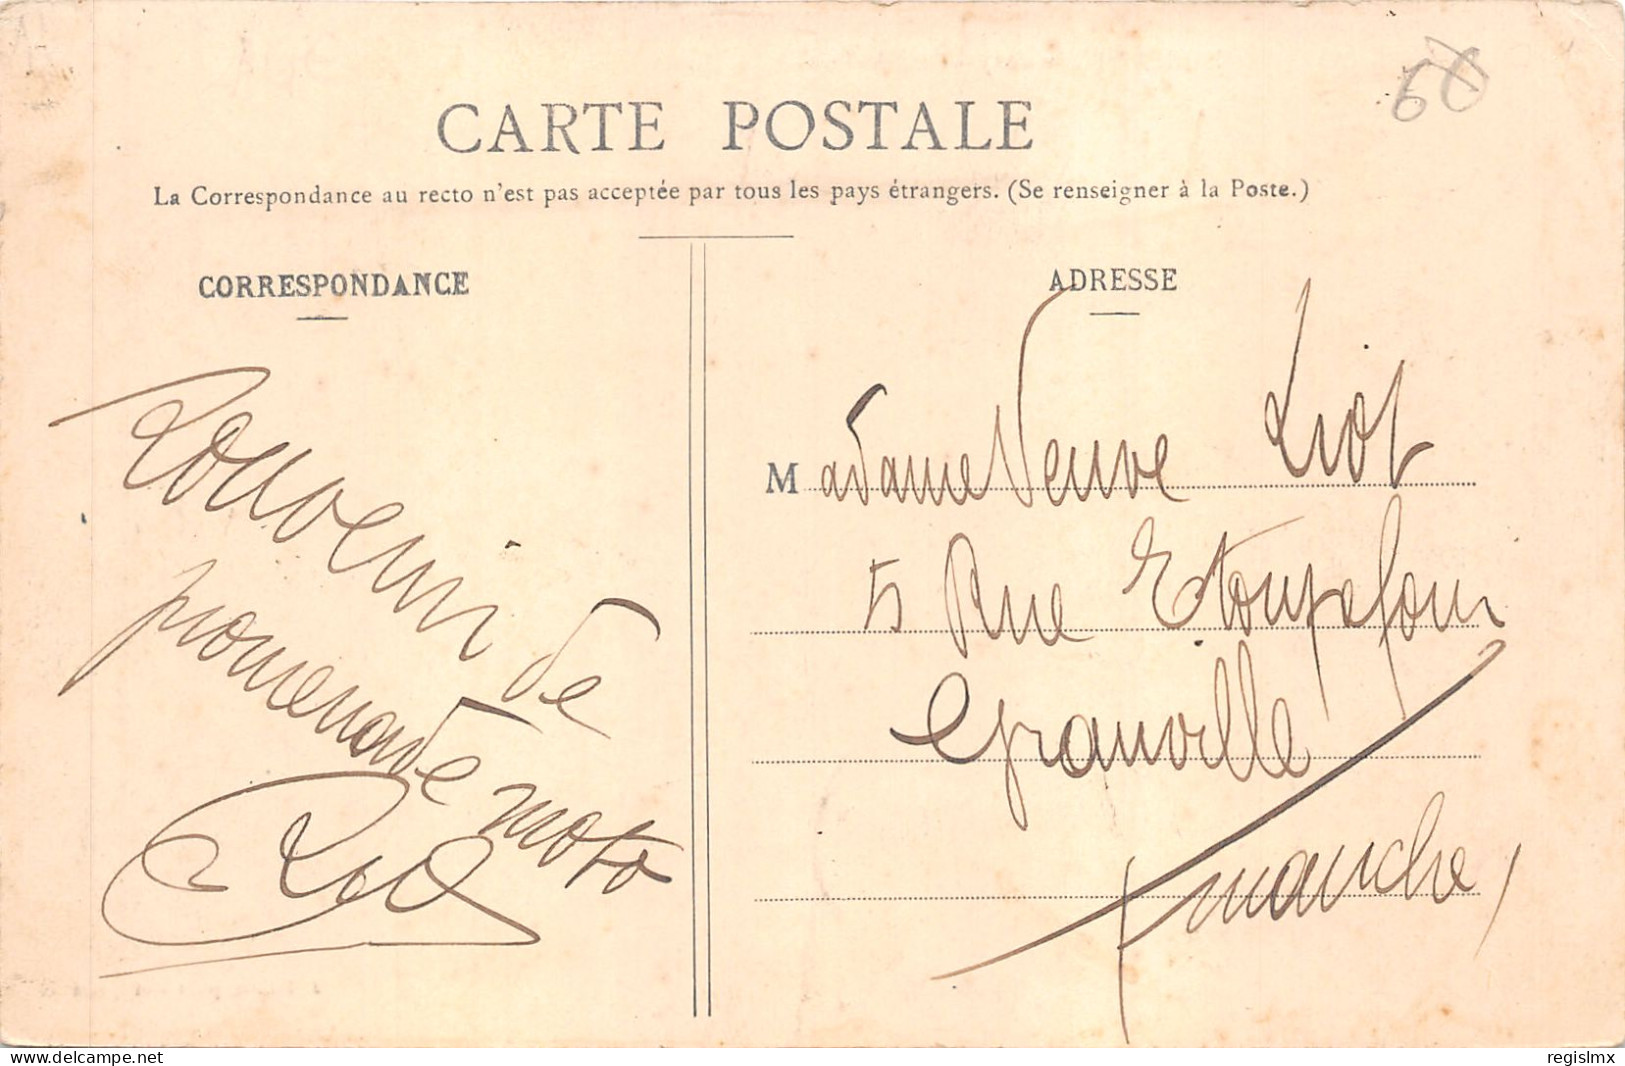 60
CARTE POSTALE
La Correspondance au recto n'est pas acceptée par tous les pays étrangers. (Se renseigner à la Poste.)
CORRESPONDANCE
Souvenir de
promenade moto
ADRESSE
Madame Veuve Liot
5 Rue Etoupefour
Granville
(manche)
www.delcampe.net
regislmx